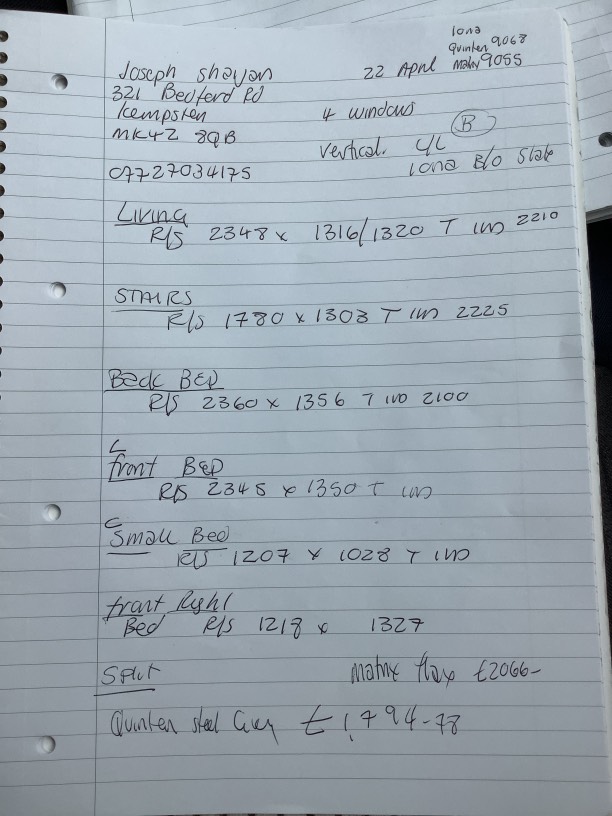 Iona
Quinten 9068
22 April Matrix 9055
Joseph Shayan
321 Bedford Rd
Kempsten
MK42 8QB
07727034175
4 windows
B
Vertical. C/C
Iona B/O Slate
Living
R/S 2348 x 1316/1320 T IW 2210
STAIRS
R/S 1780 x 1303 T IW 2225
Back BED
R/S 2360 x 1356 T IW 2100
C
front BED
R/S 2345 x 1350 T IW
C
Small Bed
R/S 1207 x 1028 T IW
front Right
Bed R/S 1218 x 1327
Split
Matrix flax £2066-
Quinten steel Grey £1,794-78